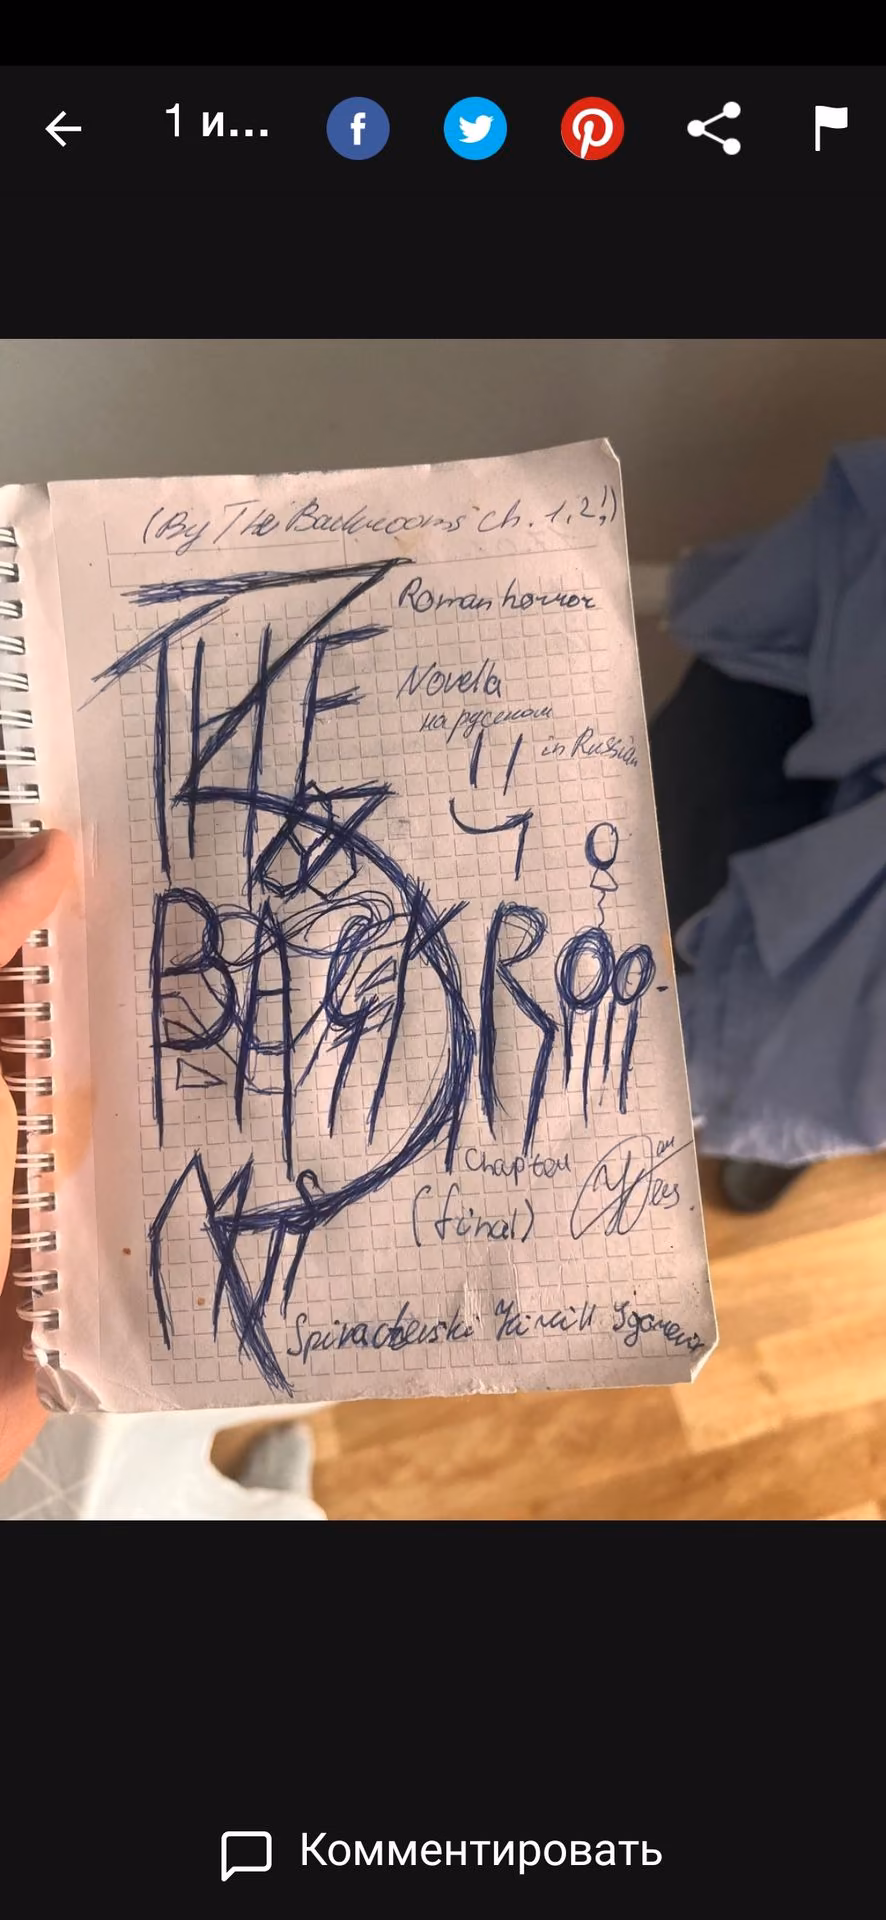 1 и...
(By The Backrooms ch. 1,2!)
THE
Roman horror
Novella
на русском
in Russian
BACKROO-
MS
Chapter
(final)
Spirachevski Kirill
Комментировать